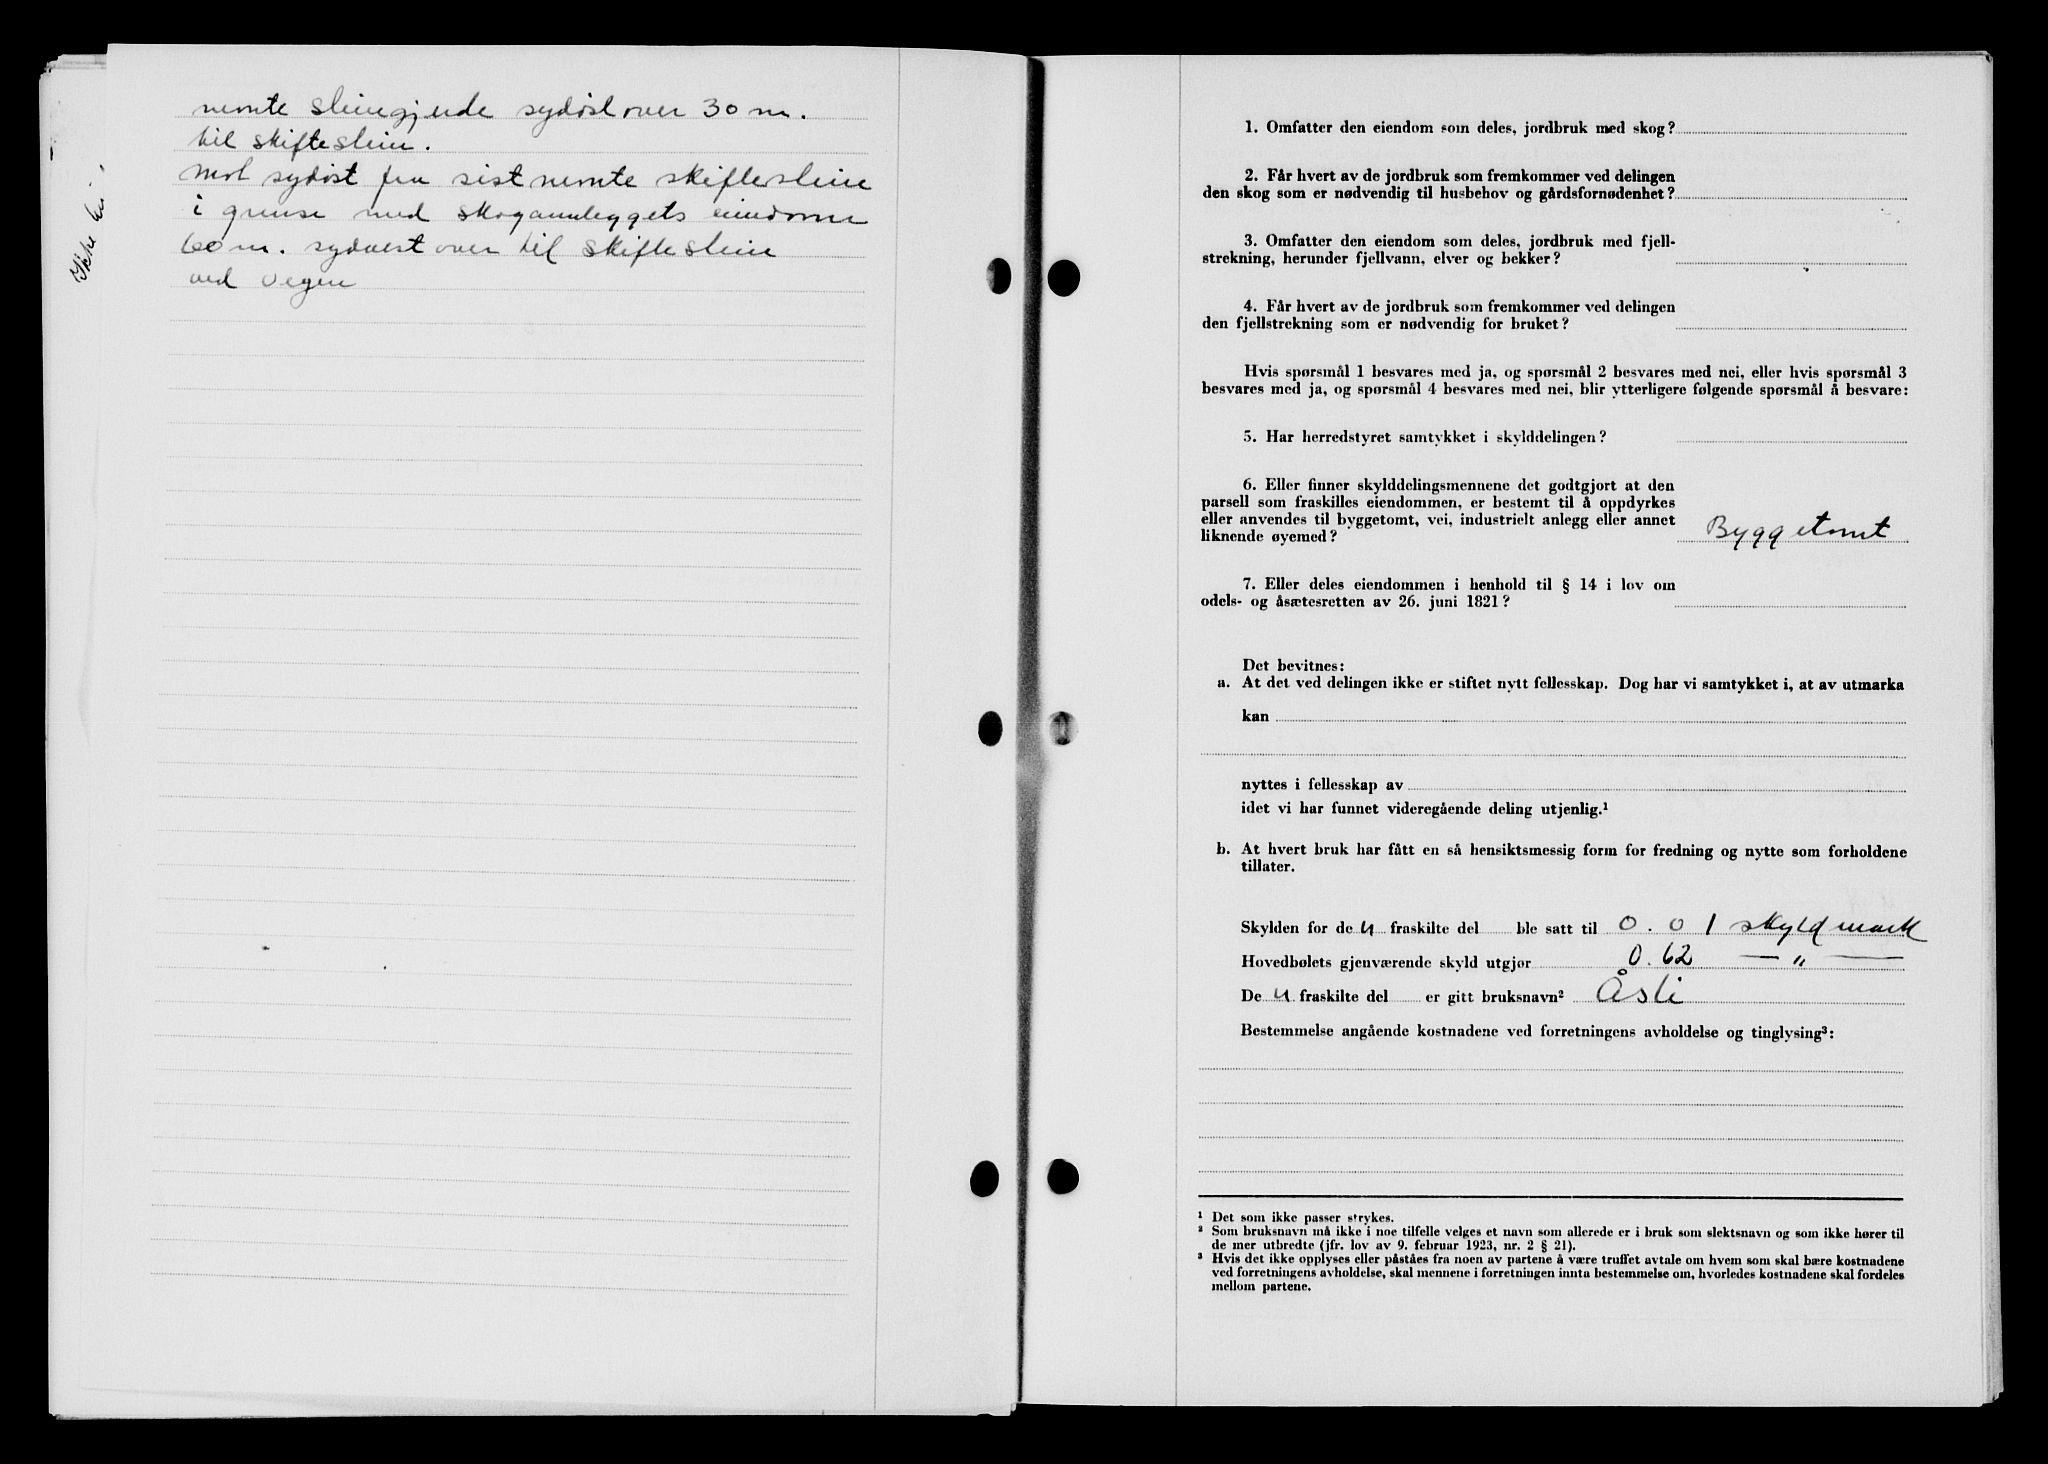 nemte steingjerde sydøst over 30 m.
til skiftestein.
Mot sydøst fra sist nemte skiftesteine
i grense med skoganleggets eiendom
60 m. sydvest over til skiftestein
ved vegen
Ikke
1. Omfatter den eiendom som deles, jordbruk med skog?
2. Får hvert av de jordbruk som fremkommer ved delingen
den skog som er nødvendig til husbehov og gårdsfornødenhet?
3. Omfatter den eiendom som deles, jordbruk med fjell-
strekning, herunder fjellvann, elver og bekker?
4. Får hvert av de jordbruk som fremkommer ved delingen
den fjellstrekning som er nødvendig for bruket?
Hvis spørsmål 1 besvares med ja, og spørsmål 2 besvares med nei, eller hvis spørsmål 3
besvares med ja, og spørsmål 4 besvares med nei, blir ytterligere følgende spørsmål å besvare:
5. Har herredstyret samtykket i skylddelingen?
6. Eller finner skylddelingsmennene det godtgjort at den
parsell som fraskilles eiendommen, er bestemt til å oppdyrkes
eller anvendes til byggetomt, vei, industrielt anlegg eller annet
liknende øyemed? Byggetomt
7. Eller deles eiendommen i henhold til § 14 i lov om
odels- og åsætesretten av 26. juni 1821?
Det bevitnes:
a. At det ved delingen ikke er stiftet nytt fellesskap. Dog har vi samtykket i, at av utmarka
kan
nyttes i fellesskap av
idet vi har funnet videregående deling utjenlig.¹
b. At hvert bruk har fått en så hensiktsmessig form for fredning og nytte som forholdene
tillater.
Skylden for den fraskilte del ble satt til 0.01 skyldmark
Hovedbølets gjenværende skyld utgjør 0.62 — " —
Den fraskilte del er gitt bruksnavn² Åsli
Bestemmelse angående kostnadene ved forretningens avholdelse og tinglysing³:
¹ Det som ikke passer strykes.
² Som bruksnavn må ikke i noe tilfelle velges et navn som allerede er i bruk som slektsnavn og som ikke hører til
de mer utbredte (jfr. lov av 9. februar 1923, nr. 2 § 21).
³ Hvis det ikke opplyses eller påståes fra noen av partene å være truffet avtale om hvem som skal bære kostnadene
ved forretningens avholdelse, skal mennene i forretningen innta bestemmelse om, hvorledes kostnadene skal fordeles
mellom partene.